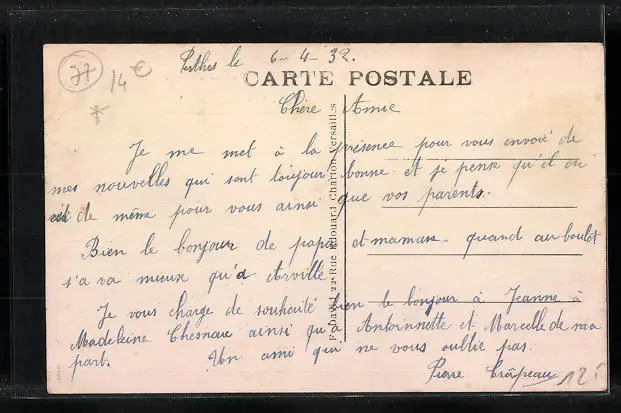 77
14€
*
Perthes le 6-4-32.
CARTE POSTALE
Chère Amie
Je me met à la présence pour vous envoié de
mes nouvelles qui sont toujour bonne et je pense qu'il en
est de même pour vous ainsi que vos parents.
Bien le bonjour de papa et maman.. quand au boulot
s'a va mieux qu'a Arville
Je vous charge de souhaité bien le bonjour à Jeanne à
Madeleine Chesnau ainsi qu'a Antoinnette et Marcelle de ma
part. Un ami qui ne vous oublie pas.
Pierre Crâpeau
F. David 22 Rue Edouard Charton Versailles